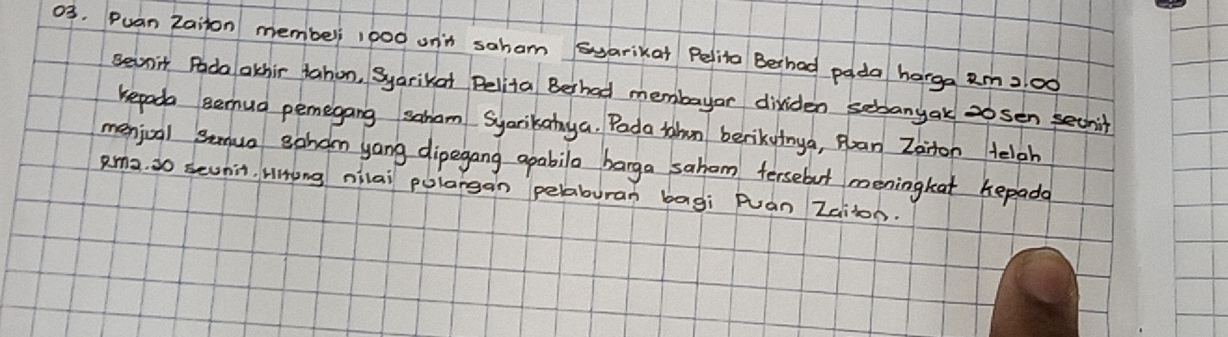 03. Puan Zaiton membeli 1000 unit saham Syarikat Pelita Berhad pada harga RM 2.00
seunit Pada akhir tahun, Syarikat Pelita Berhad membayar dividen sebanyak 20 sen seunit
kepada semua pemegang saham Syarikatnya. Pada tahun berikutnya, Puan Zaiton telah
menjual semua saham yang dipegang apabila harga saham tersebut meningkat kepada
RM2.20 seunit. Hitung nilai pulangan pelaburan bagi Puan Zaiton.